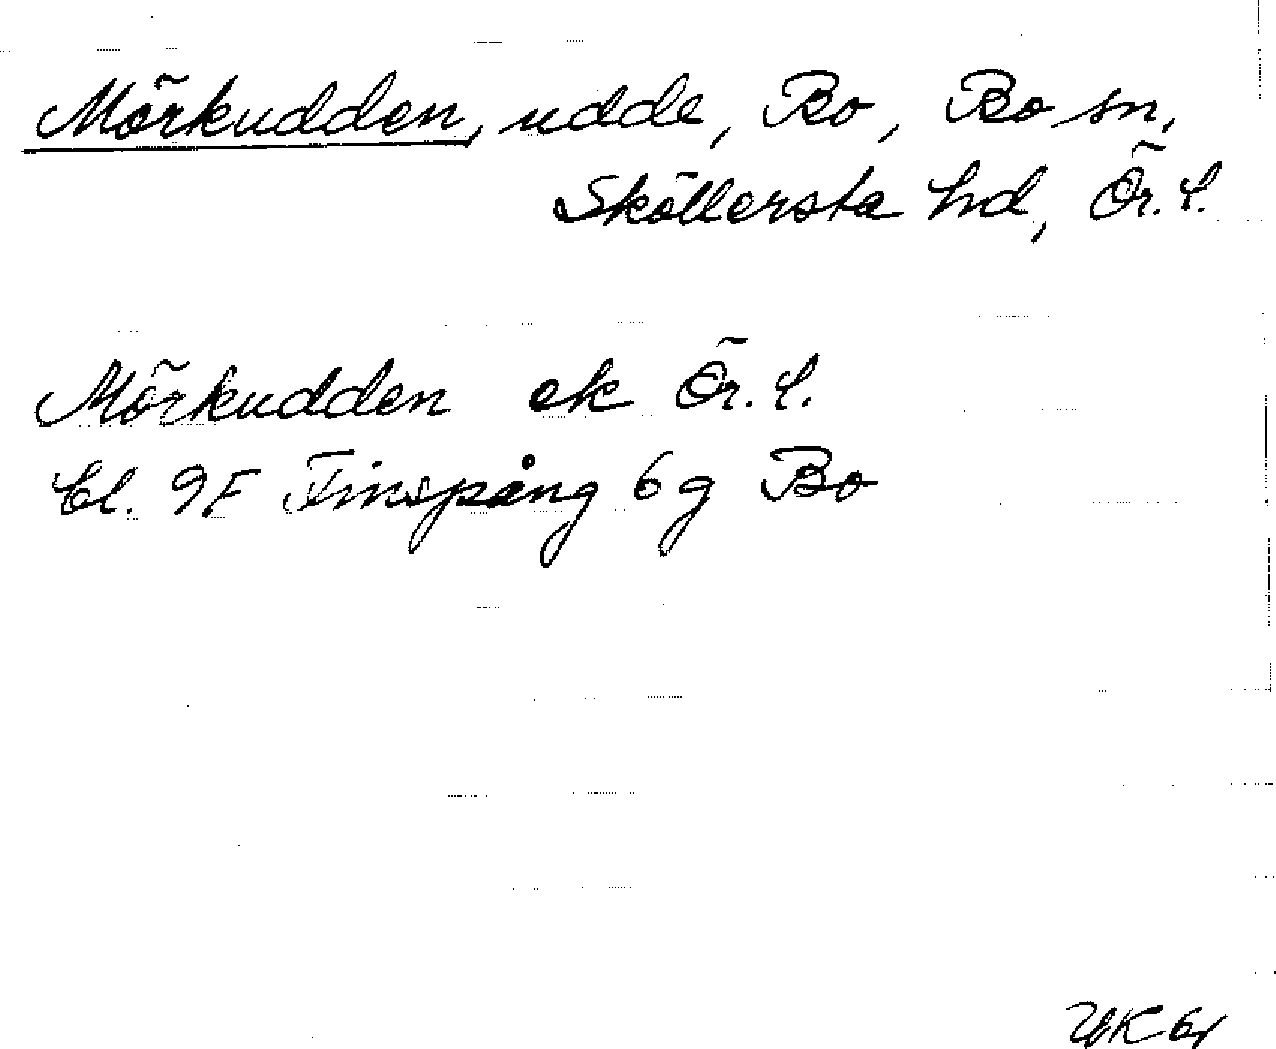 Mörkudden, udde, Bo, Bo sn,
Sköllersta hd, Ör. l.
Mörkudden ek Ör. l.
bl. 9F Finspång 6g Bo